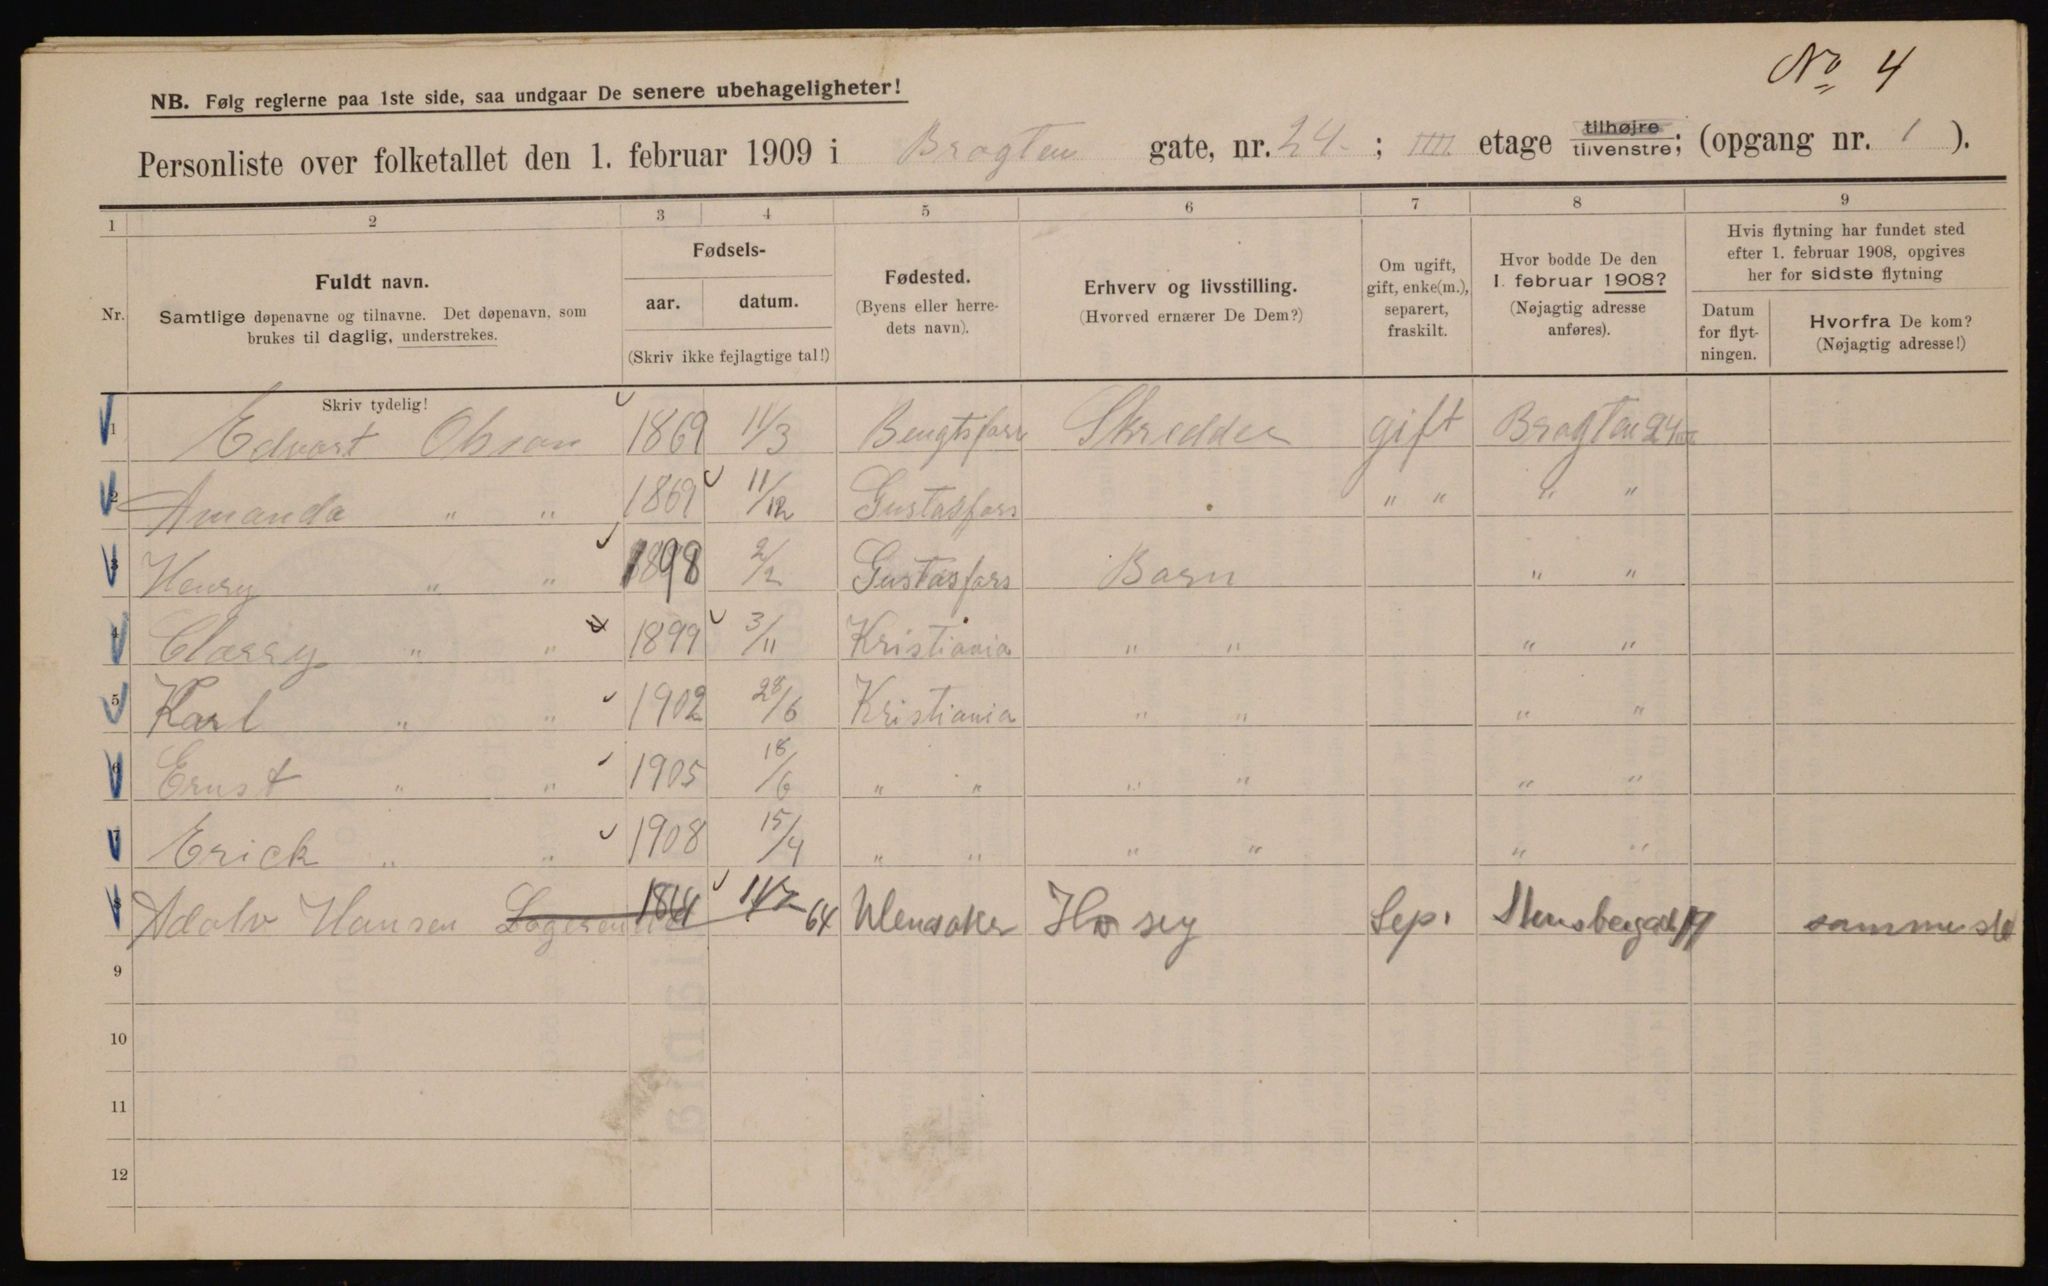 No 4
NB. Følg reglerne paa 1ste side, saa undgaar De senere ubehageligheter!
Personliste over folketallet den 1. februar 1909 i Brogten gate, nr. 24 ; IIII etage tilhøjre tilvenstre; (opgang nr. 1 ).
1 2 3 4 5 6 7 8 9
Nr.
Fuldt navn.
Samtlige døpenavne og tilnavne. Det døpenavn, som
brukes til daglig, understrekes.
Skriv tydelig!
Fødsels-
aar. datum.
(Skriv ikke fejlagtige tal!)
Fødested.
(Byens eller herre-
dets navn).
Erhverv og livsstilling.
(Hvorved ernærer De Dem?)
Om ugift,
gift, enke(m.),
separert,
fraskilt.
Hvor bodde De den
1. februar 1908?
(Nøjagtig adresse
anføres).
Hvis flytning har fundet sted
efter 1. februar 1908, opgives
her for sidste flytning
Datum
for flyt-
ningen.
Hvorfra De kom?
(Nøjagtig adresse!)
1 Edvart Olsson 1869 11/3 Bengtsfors Skredder gift Brogten 24
2 Amanda " " 1869 11/12 Gustasfors " " " "
3 Henry " " 1898 2/2 Gustasfors Barn " "
4 Clarry " " 1899 3/11 Kristiania " " " "
5 Karl " " 1902 28/6 Kristiania " " " "
6 Ernst " " 1905 18/6 " " " " " "
7 Erick " " 1908 15/4 " " " " " "
8 Adolv Hansen 64 Sep. sammested
9
10
11
12